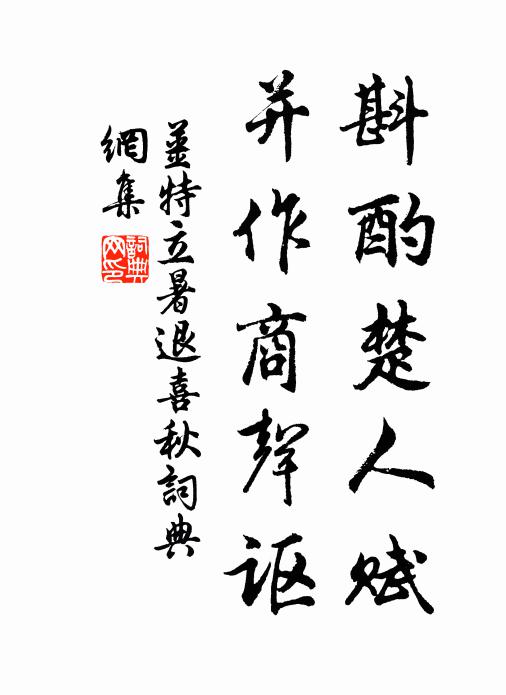 斟酌楚人赋
并作商聲讴
薑特立暑退喜秋詞典
網集
詞典
网印